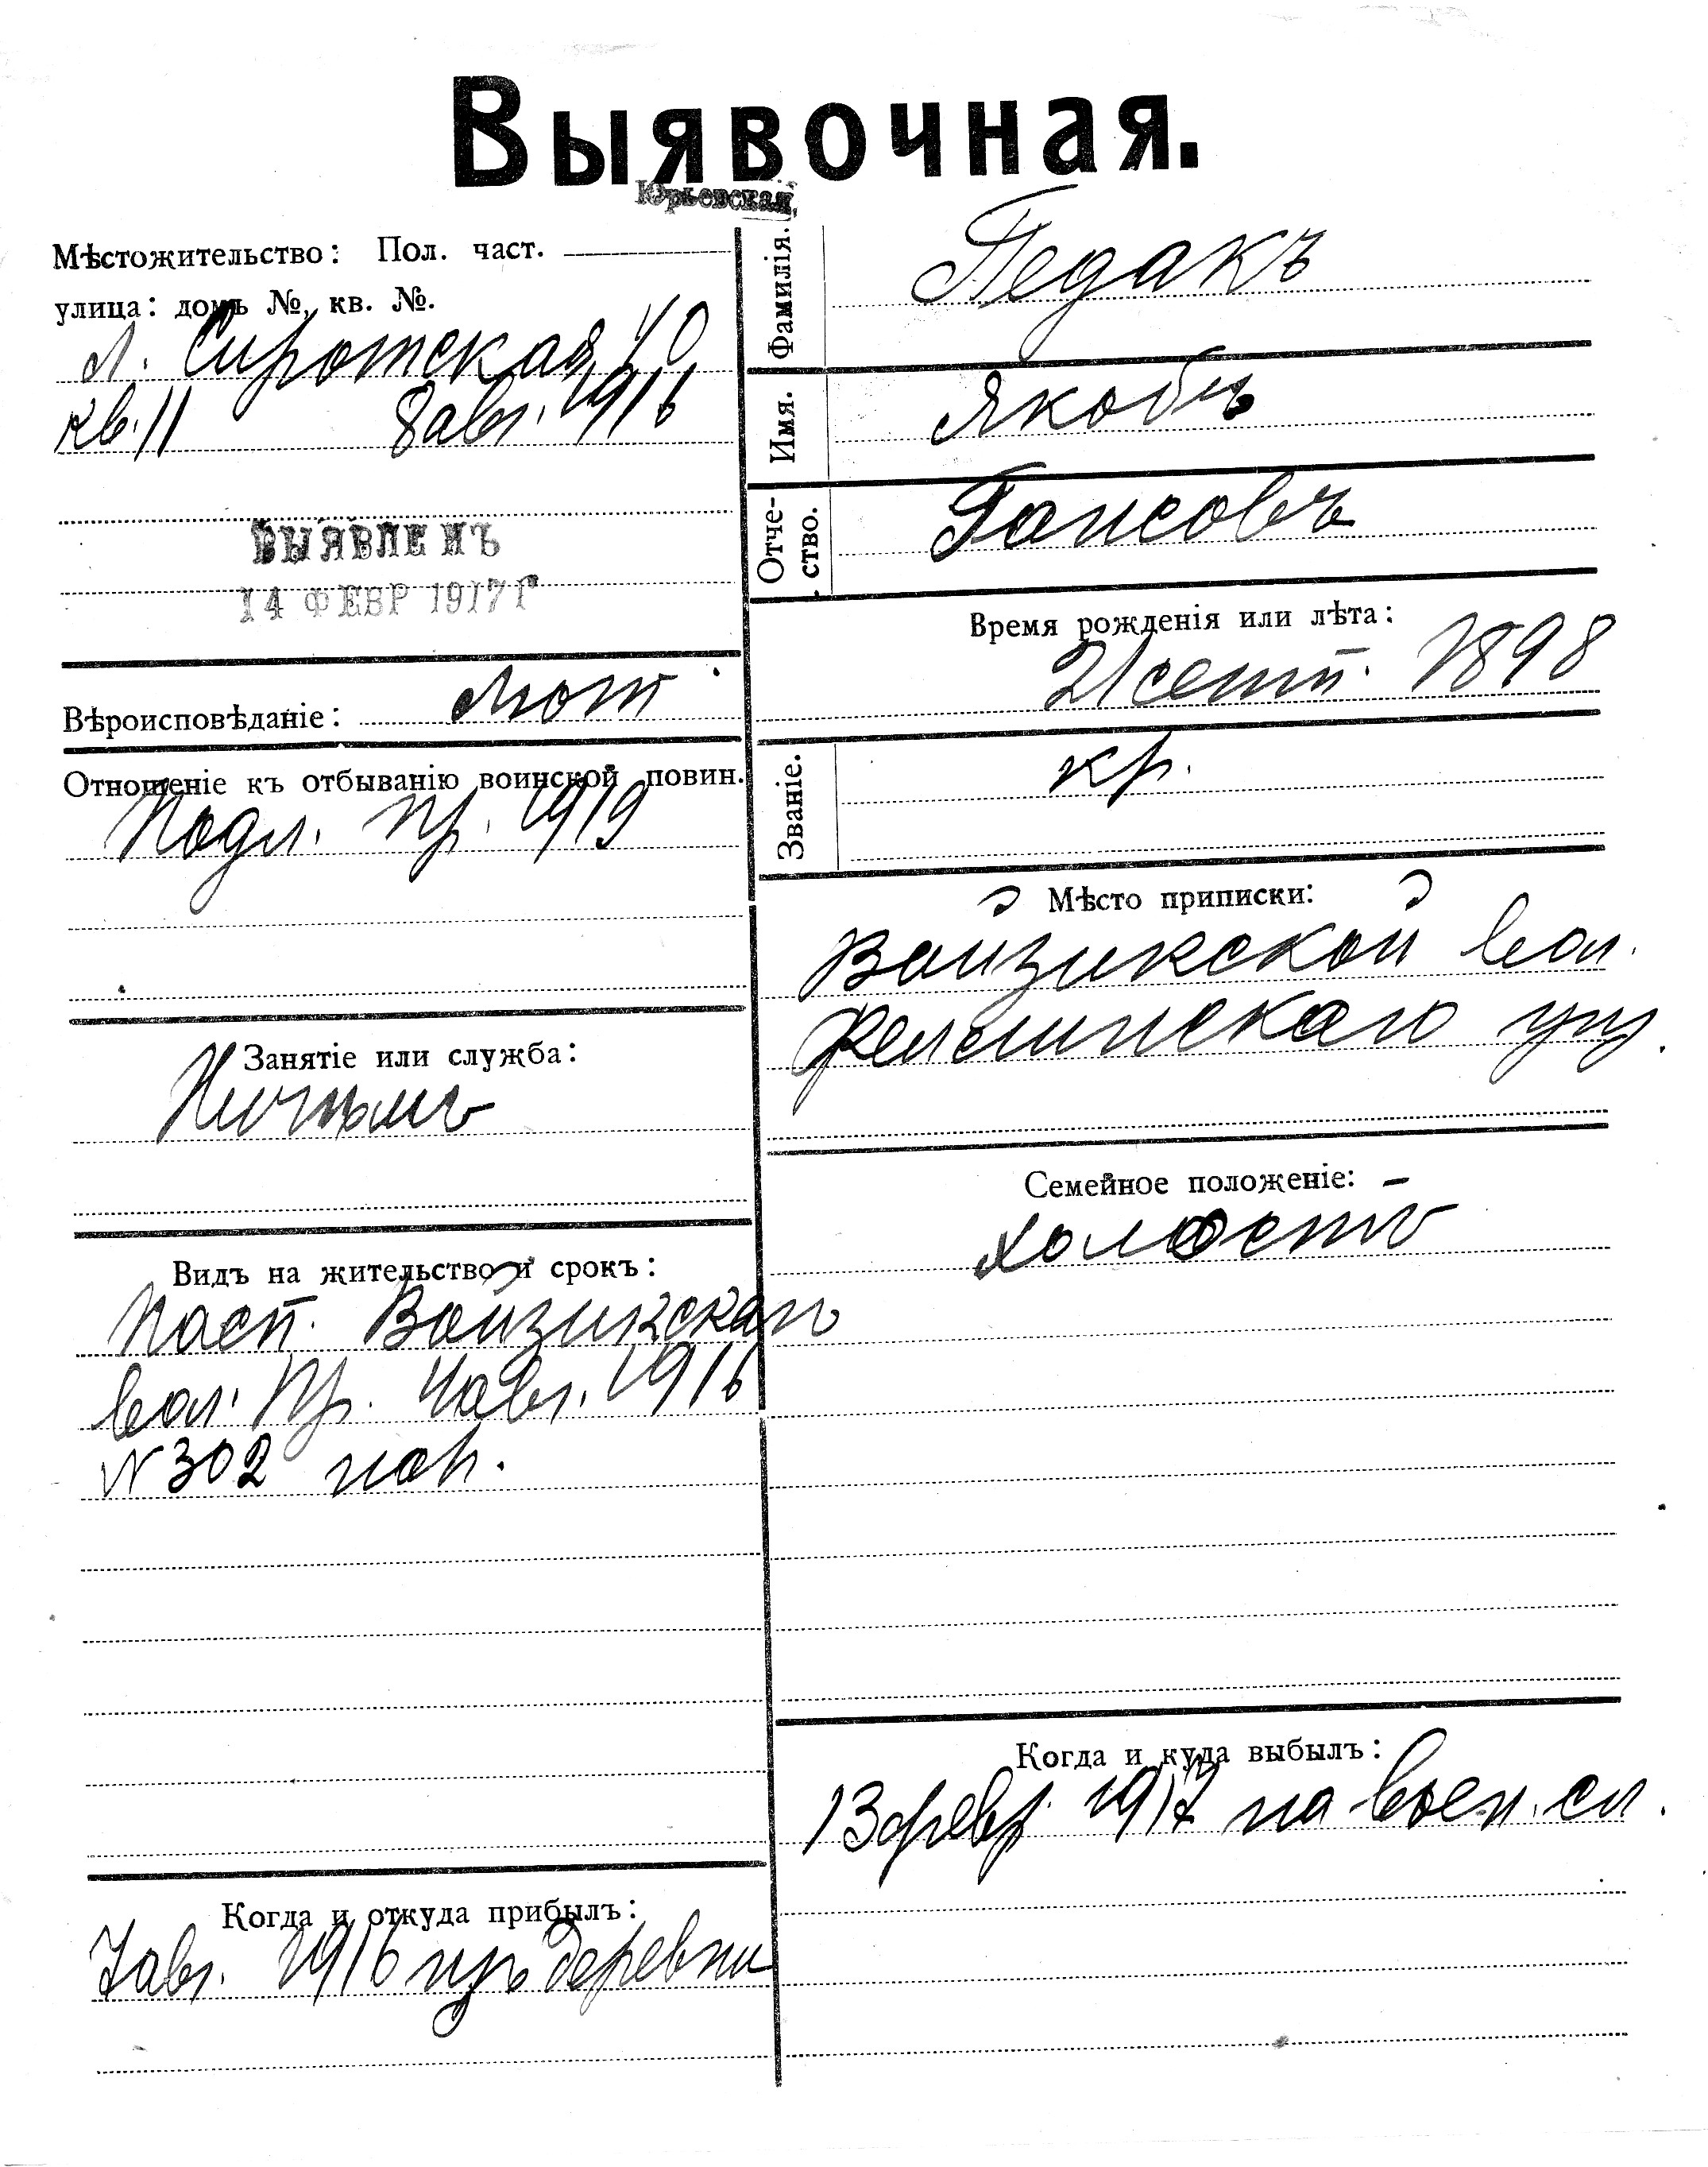 Выявочная.
Юрьевская.
Мѣстожительство: Пол. част.
улица: домъ №, кв. №.
Л. Сиротская, 40
кв. 11 8 авг. 1916
ВЫЯВЛЕНЪ
14 ФЕВР 1917 Г
Вѣроисповѣданіе: Лют.
Отношеніе къ отбыванію воинской повин.
Подл. пр. 1919
Занятіе или служба:
Ничѣмъ
Видъ на жительство и срокъ:
Пасп. Войзикскаго
вол. Пр. 4 авг. 1916
N 302
Когда и откуда прибылъ:
7 авг. 1916 изъ деревни
Фамилія. Педакъ
Имя. Якобъ
Отче-
ство. Гансовъ
Время рожденія или лѣта:
21 сент. 1898
Званіе. кр.
Мѣсто приписки:
Войзикской вол.
Феллинскаго уѣз.
Семейное положеніе:
холостъ
Когда и куда выбылъ:
13 февр. 1917 на воен. сл.